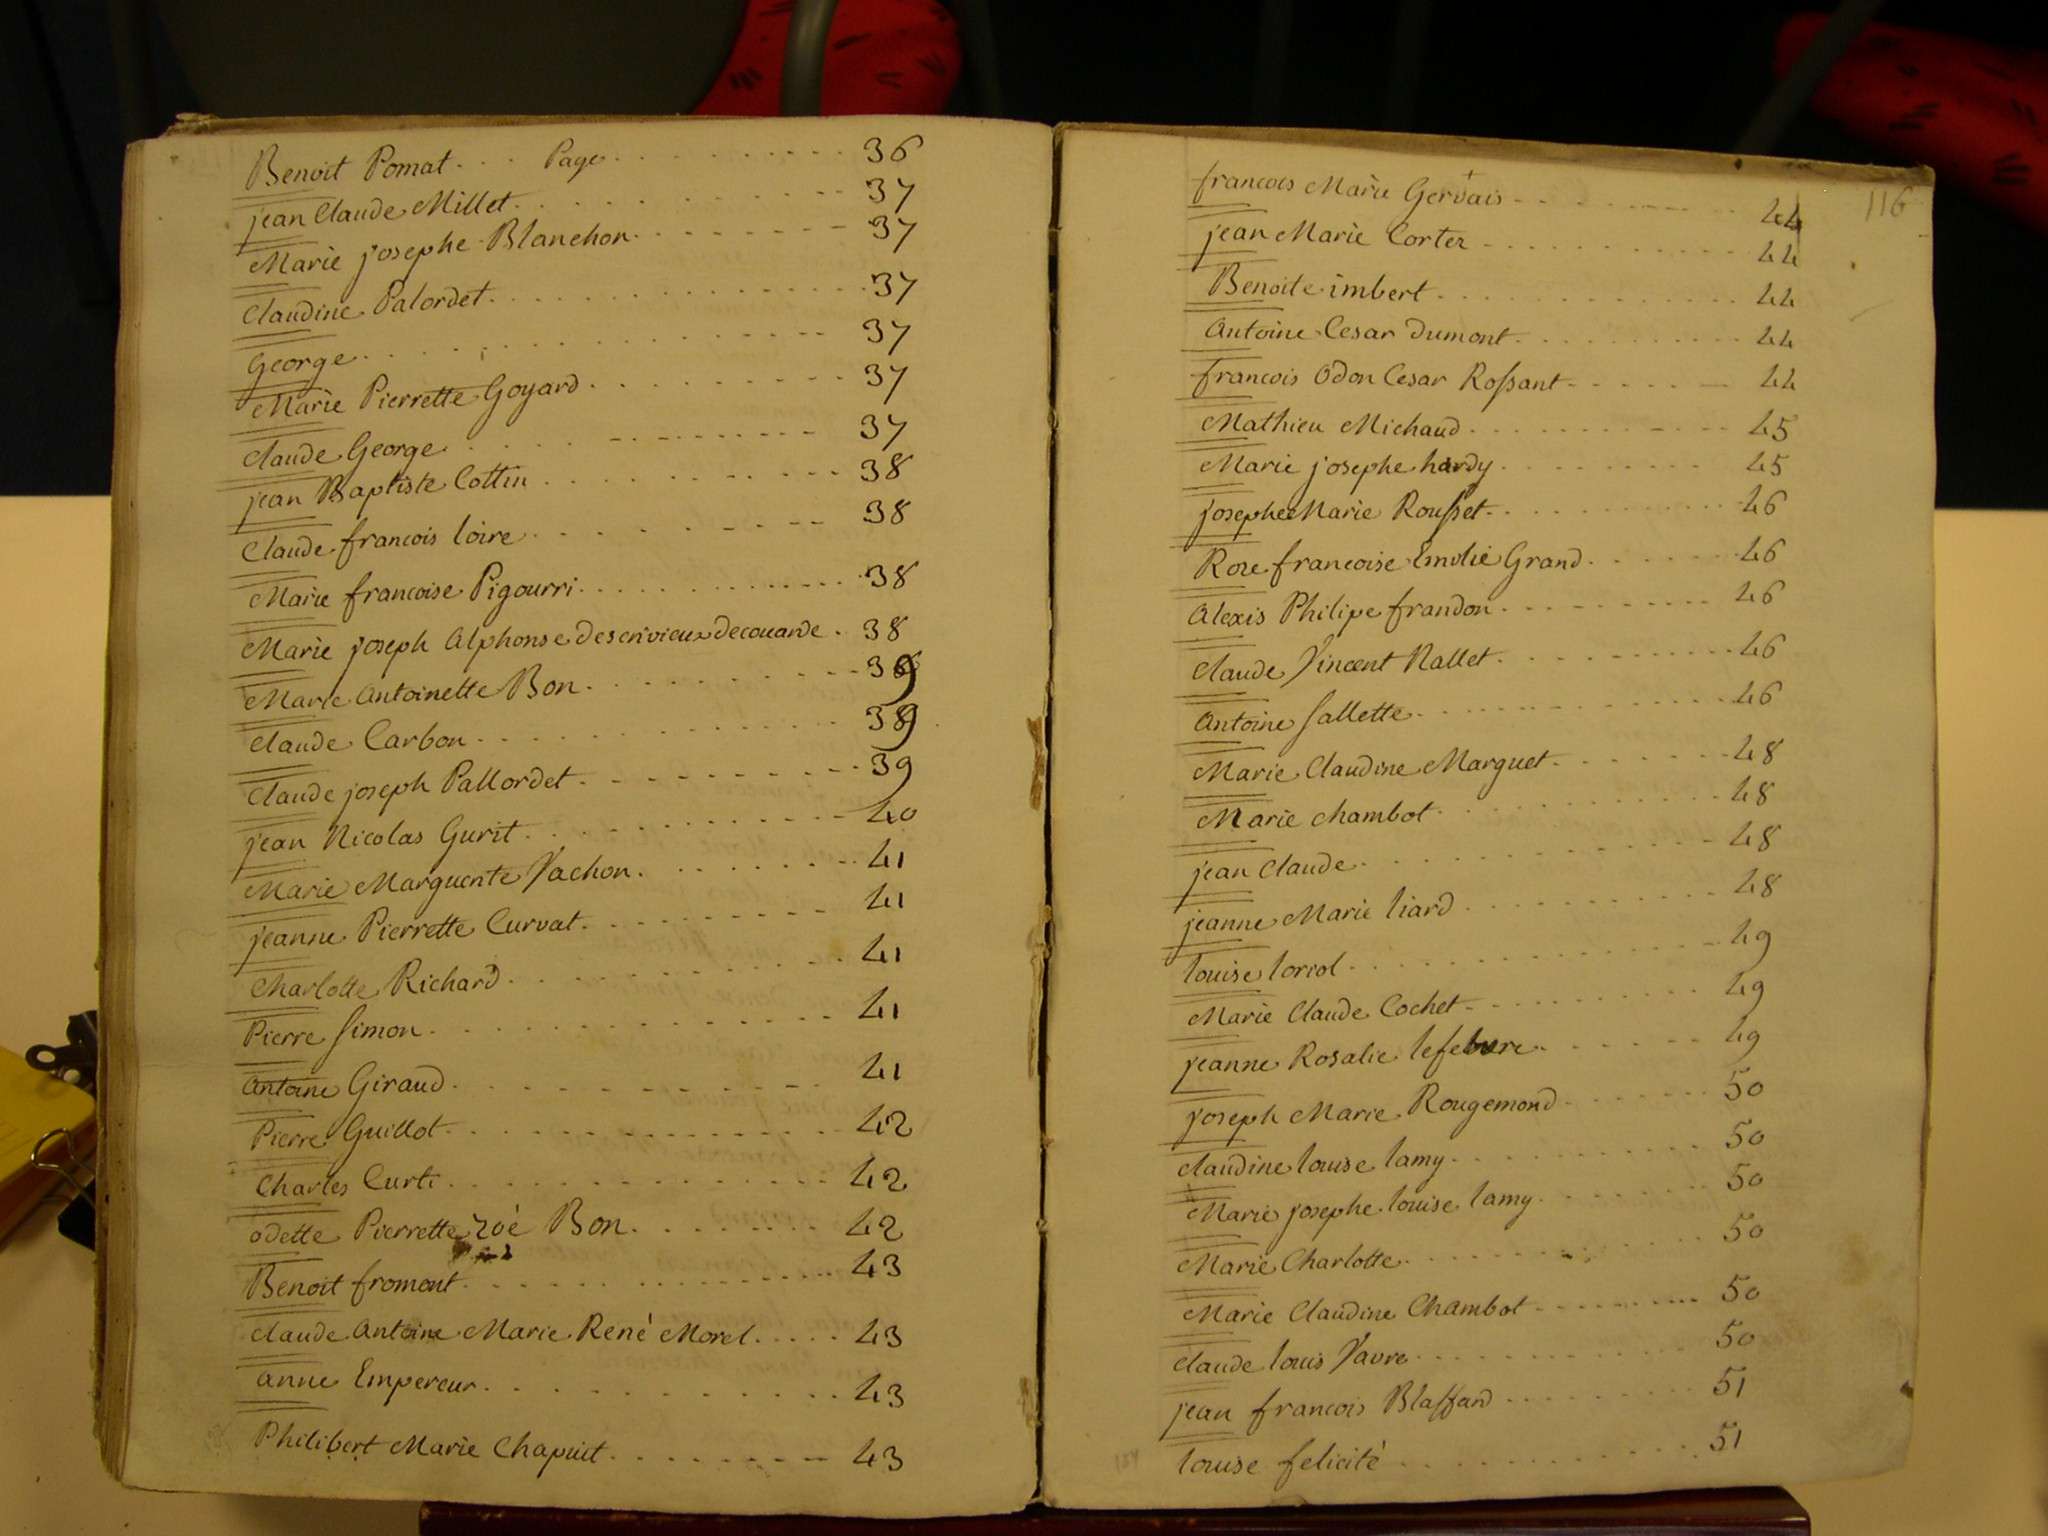 Benoit Pomat . . . Page . . . . . . . . . 36
jean Claude Millet . . . . . . . . . . 37
Marie josephe Blanchon . . . . . . . . 37
Claudine Palordet . . . . . . . . . . 37
George . . . . . . . . . . 37
Marie Pierrette Goyard . . . . . . . . . 37
Claude George . . . . . . . . . . 37
jean Baptiste Cottin . . . . . . . . . . 38
Claude francois loire . . . . . . . . . 38
Marie francoise Pigourri . . . . . . . . . 38
Marie joseph Alphonse descrivieux decouande . 38
Marie Antoinette Bon . . . . . . . . . 39
Claude Carbon . . . . . . . . . . 39
Claude joseph Pallordet . . . . . . . . . 39
jean Nicolas Gurit . . . . . . . . . . 40
Marie Marguerite Vachon . . . . . . . . 41
jeanne Pierrette Curvat . . . . . . . . . 41
Charlotte Richard . . . . . . . . . . 41
Pierre Simon . . . . . . . . . . 41
Antoine Giraud . . . . . . . . . . 41
Pierre Guillot . . . . . . . . . . 42
Charles Curti . . . . . . . . . . 42
odette Pierrette zoé Bon . . . . . . . . 42
Benoit fromont . . . . . . . . . . 43
Claude Antoine Marie René Morel . . . . . 43
anne Empereur . . . . . . . . . . 43
Philibert Marie Chapuit . . . . . . . . 43
116
francois Marie Gervais . . . . . . . . 44
jean Marie Cortez . . . . . . . . . . 44
Benoite imbert . . . . . . . . . . 44
Antoine Cesar Dumont . . . . . . . . . 44
francois Odon Cesar Rossant . . . . . . 44
Mathieu Michaud . . . . . . . . . . 45
Marie josephe hardy . . . . . . . . . 45
josephe Marie Rousset . . . . . . . . . 46
Roze francoise Emilie Grand . . . . . . 46
Alexis Philipe frandon . . . . . . . . . 46
Claude Vincent Nallet . . . . . . . . . 46
Antoine Sallette . . . . . . . . . . 46
Marie Claudine Marguet . . . . . . . . 48
Marie Chambot . . . . . . . . . . 48
jean Claude . . . . . . . . . . 48
jeanne Marie liard . . . . . . . . . . 48
louise loriol . . . . . . . . . . 49
Marie Claude Cochet . . . . . . . . . 49
jeanne Rosalie lefebvre . . . . . . . . 49
joseph Marie Rougemond . . . . . . . . 50
Claudine louise lamy . . . . . . . . . 50
Marie josephe louise lamy . . . . . . . 50
Marie Charlotte . . . . . . . . . . 50
Marie Claudine Chambot . . . . . . . . 50
Claude louis Favre . . . . . . . . . . 50
jean francois Blaffard . . . . . . . . . 51
louise felicité . . . . . . . . . . 51